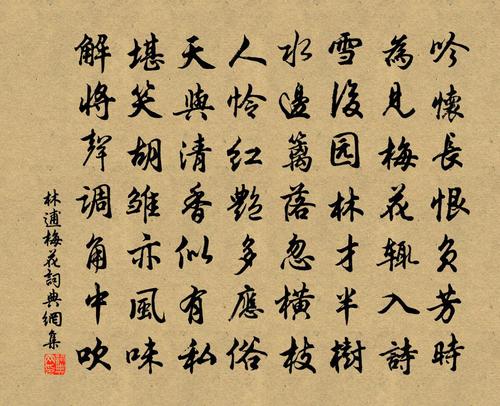 吟懷長恨负芳時
為見梅花輒入詩
雪後园林才半樹
水邊籬落忽橫枝
人怜紅艷多應俗
天與清香似有私
堪笑胡雏亦風味
解將聲调角中吹
林逋梅花詞典網集